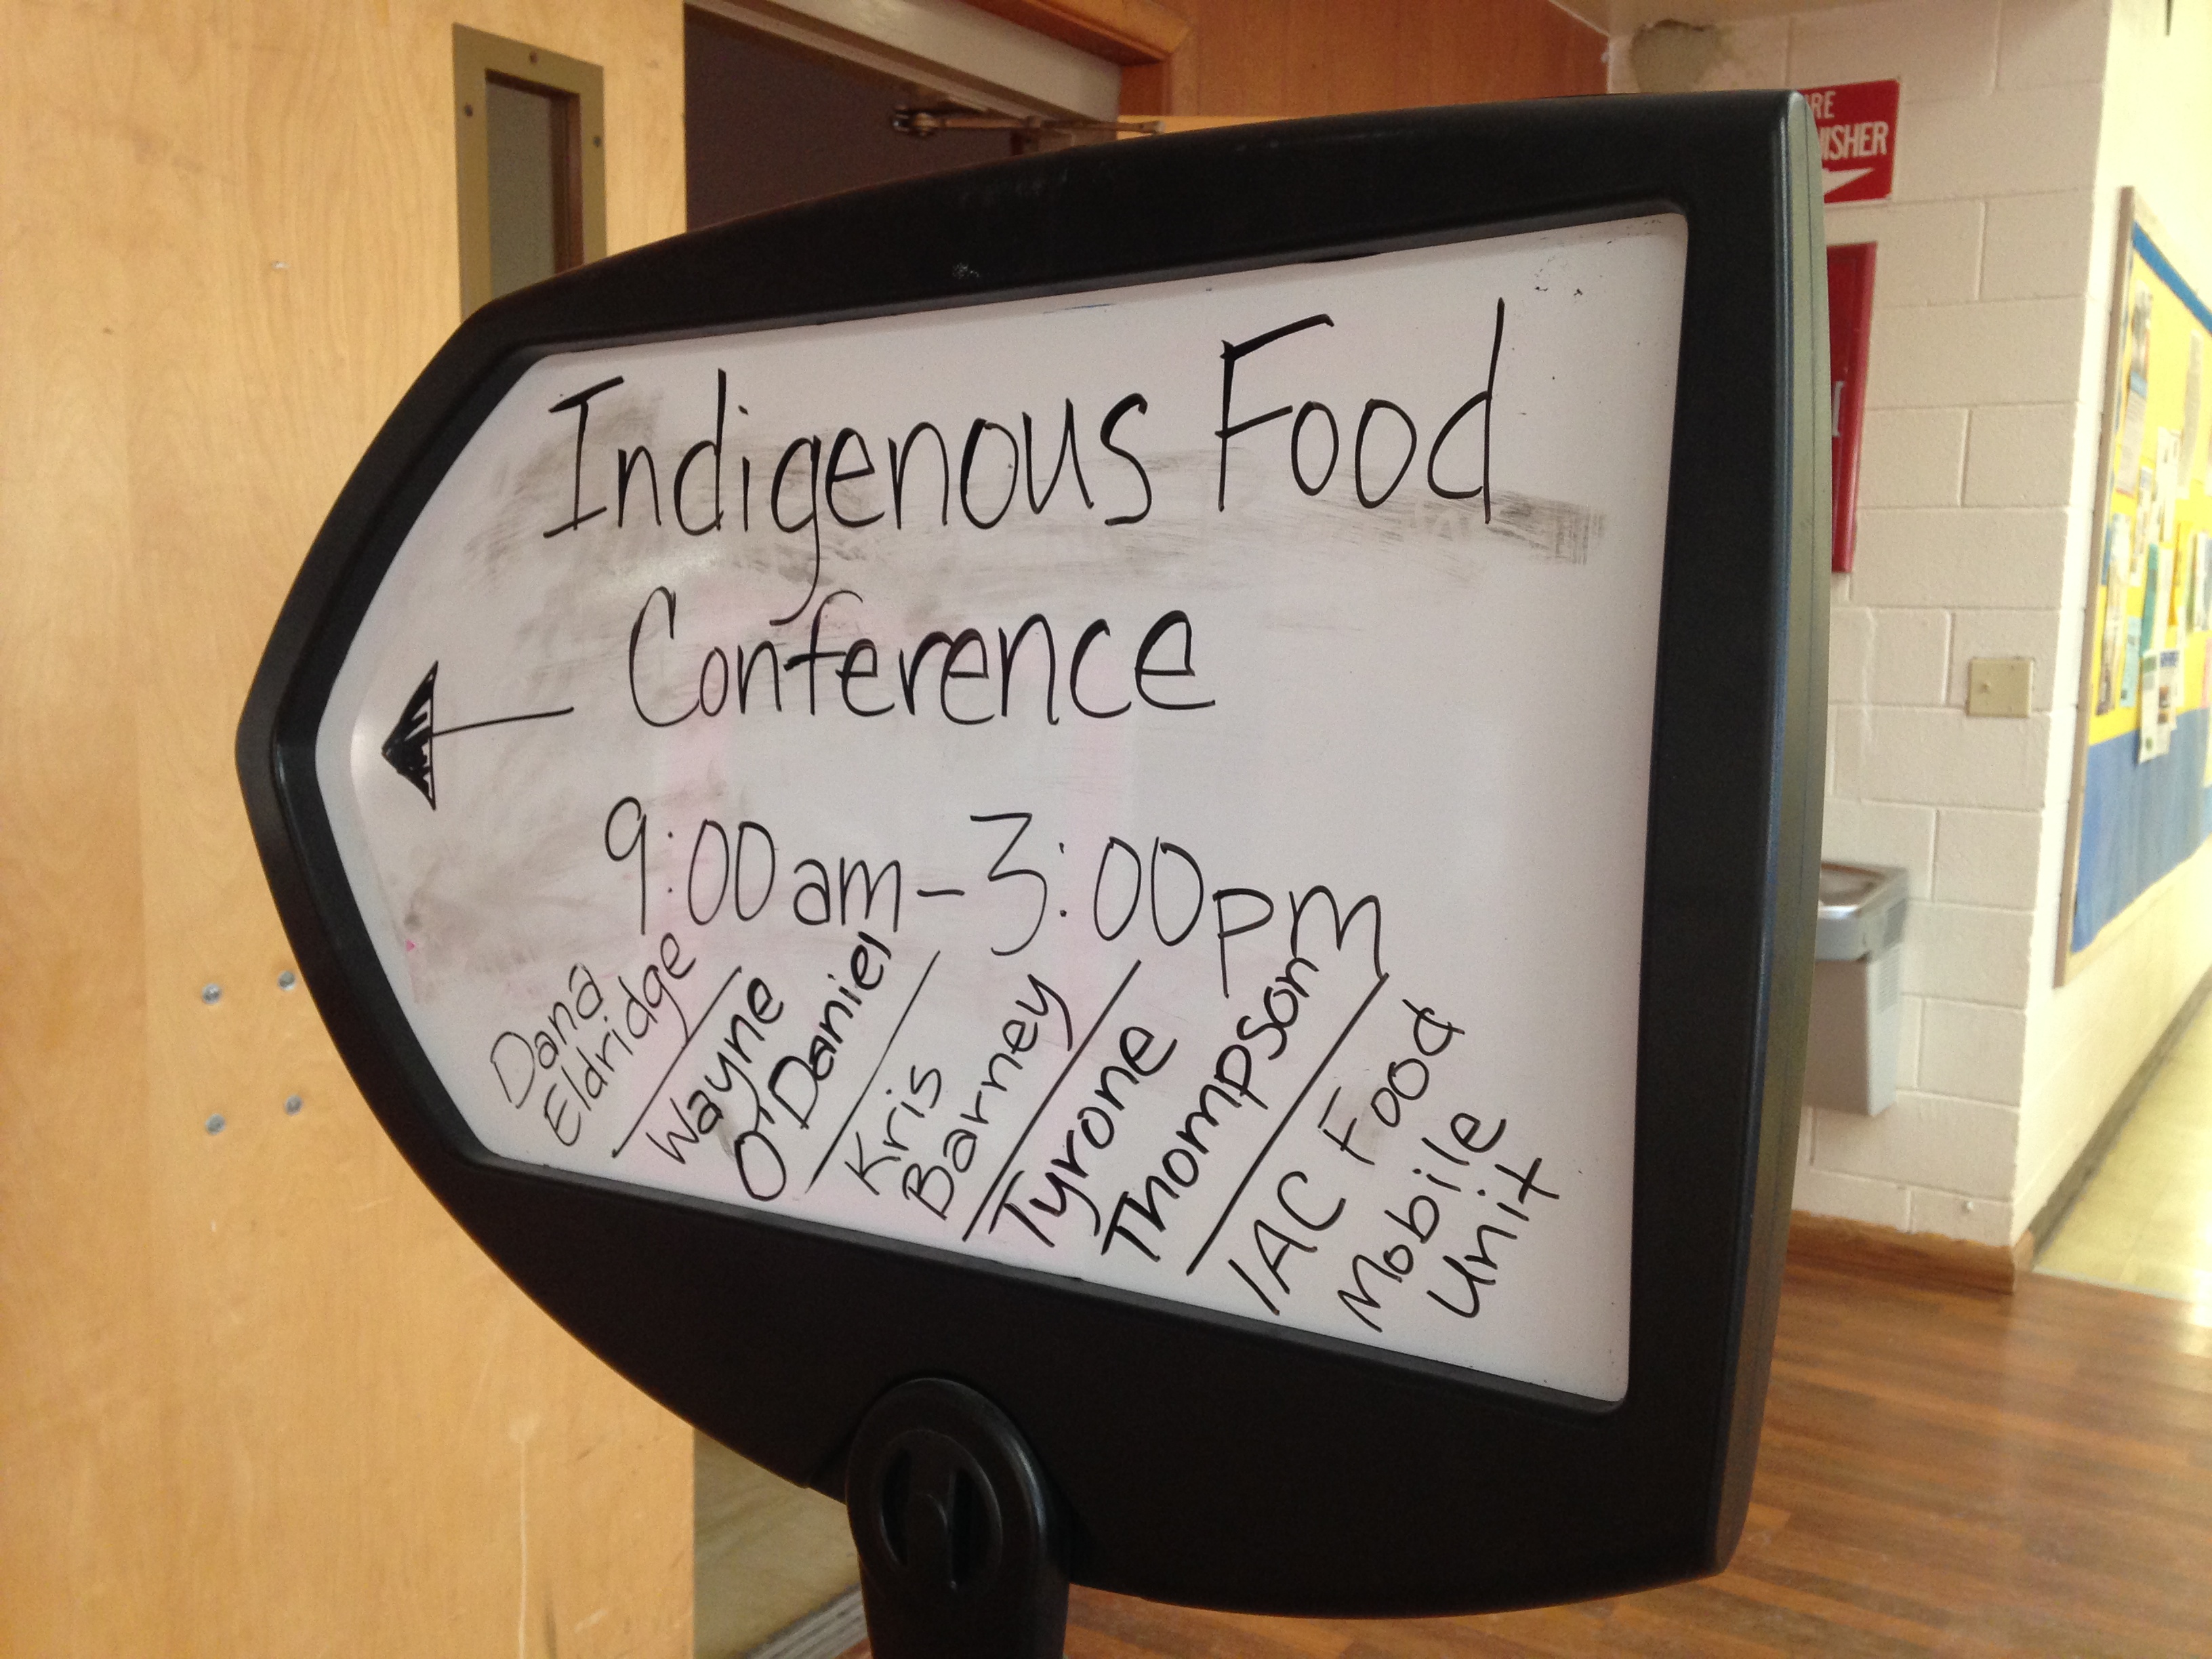 Indigenous Food
Conference
9:00am-3:00pm
Dana
Eldridge
Wayne
O'Daniel
Kris
Barney
Tyrone
Thompson
IAC Food
Mobile
Unit
RE
ISHER